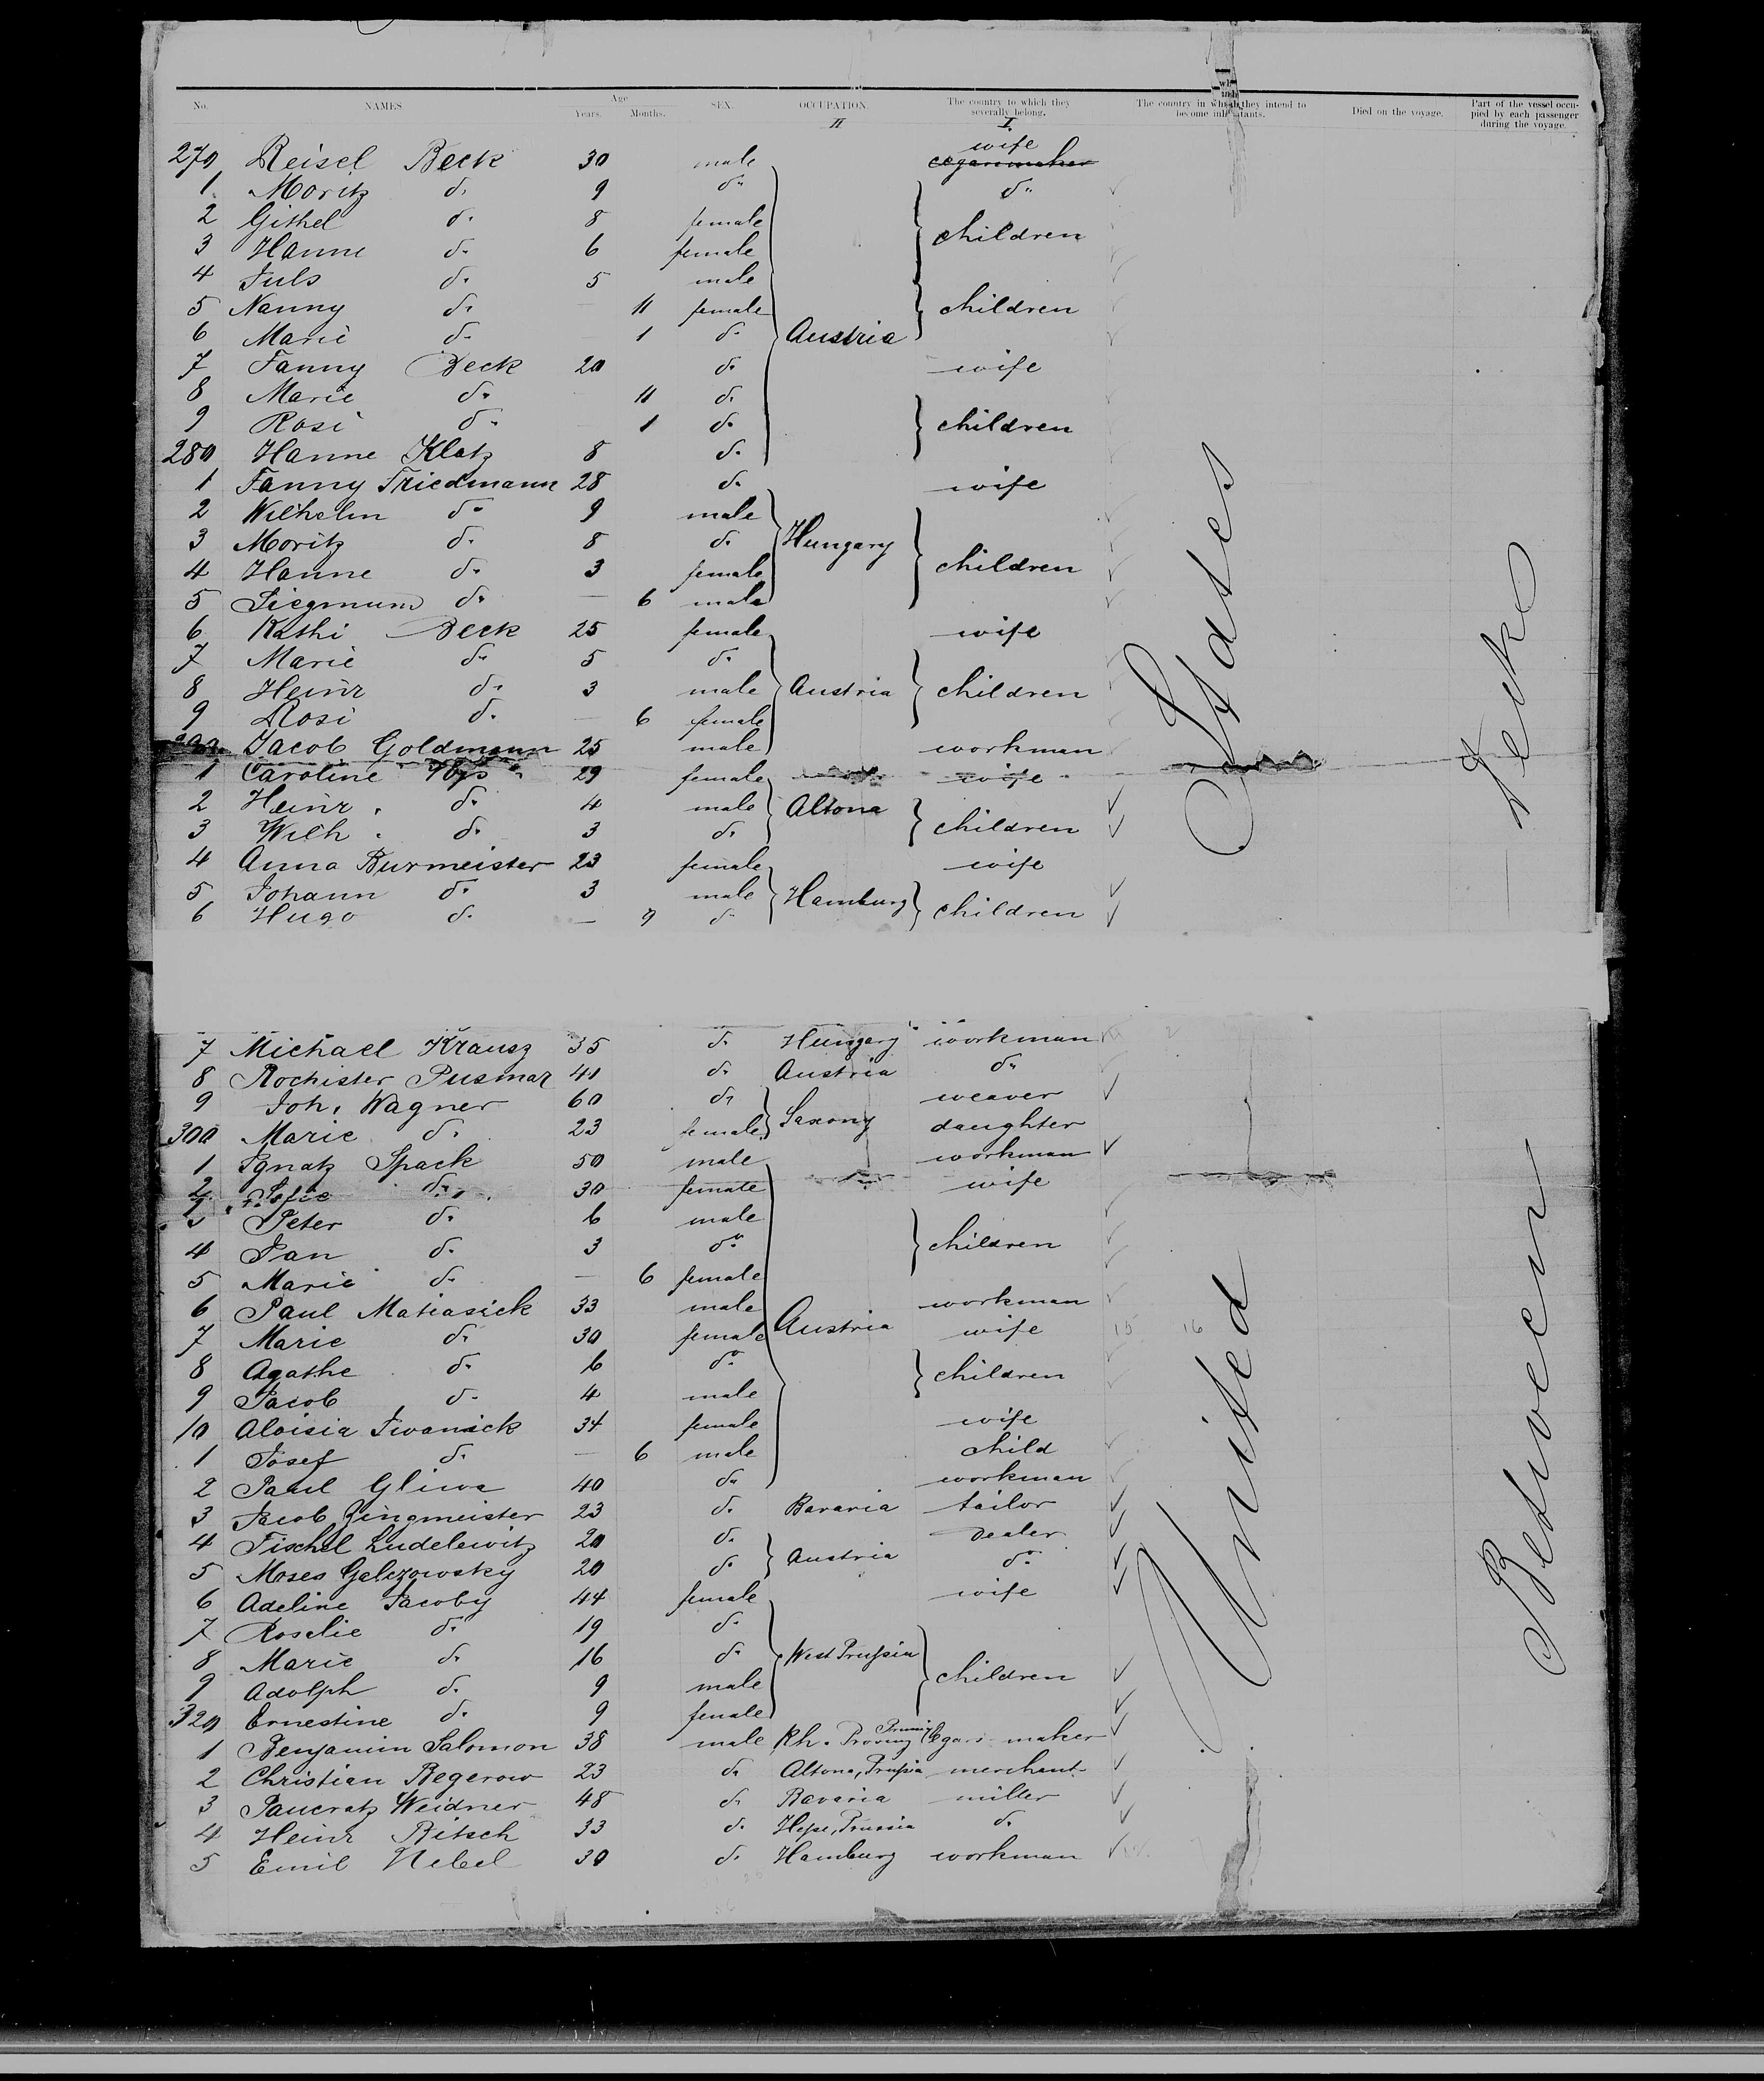 No. NAMES. Age Years. Months. SEX. OCCUPATION. The country to which they severally belong. The country in which they intend to become inhabitants. Died on the voyage. Part of the vessel occupied by each passenger during the voyage.
II I.
wife
270 Reisel Beck 30 male cegarsmaker
1 Moritz do 9 do do
2 Githel do 8 female
3 Hanne do 6 female children
4 Juls do 5 male
5 Nanny do — 11 female children
6 Marie do — 1 do Austria
7 Fanny Beck 20 do wife
8 Marie do 11 do
9 Rosi do — 1 do children
280 Hanne Klatz 8 do
1 Fanny Friedmann 28 do wife
2 Wilhelm do 9 male
3 Moritz do 8 do Hungary
4 Hanne do 3 female children
5 Siegmund do — 6 male
6 Kathi Beck 25 female wife
7 Marie do 5 do
8 Heinr do 3 male Austria children
9 Rosi do — 6 female
Jacob Goldmann 25 male workman
1 Caroline 29 female wife
2 Heinr. do 4 male Altona
3 Wilh. do 3 do children
4 Anna Burmeister 23 female wife
5 Johann do 3 male Hamburg
6 Hugo do — 9 do children
7 Michael Krausz 35 do Hungary workman
8 Rochister Pusmar 41 do Austria do
9 Joh. Wagner 60 do Saxony weaver
300 Marie do 23 female daughter
1 Ignatz Spack 50 male workman
2 do 30 female wife
3 Peter do 6 male
4 Jan do 3 do children
5 Marie do — 6 female
6 Paul Matiasick 33 male workman
7 Marie do 30 female Austria wife 15 16
8 Agathe do 6 do children
9 Jacob do 4 male
10 Aloisia Iwanick 34 female wife
1 Josef do — 6 male child
2 Paul Gliwa 40 do workman
3 Jacob Zingmeister 23 do Bavaria tailor
4 Fischel Ludelewitz 20 do Austria dealer
5 Moses Galezowsky 20 do do
6 Adeline Jacoby 44 female wife
7 Rosalie do 19 do
8 Marie do 16 do West Prussia
9 Adolph do 9 male children
320 Ernestine do 9 female
1 Benjamin Salomon 38 male Rh. Provinz Cegars maker
2 Christian Begerow 23 do Altona, Prussia merchant
3 Pancratz Weidner 48 do Bavaria miller
4 Heinr Ritsch 33 do Hesse, Prussia do
5 Emil Nebel 30 do Hamburg workman
United States
Between Decks